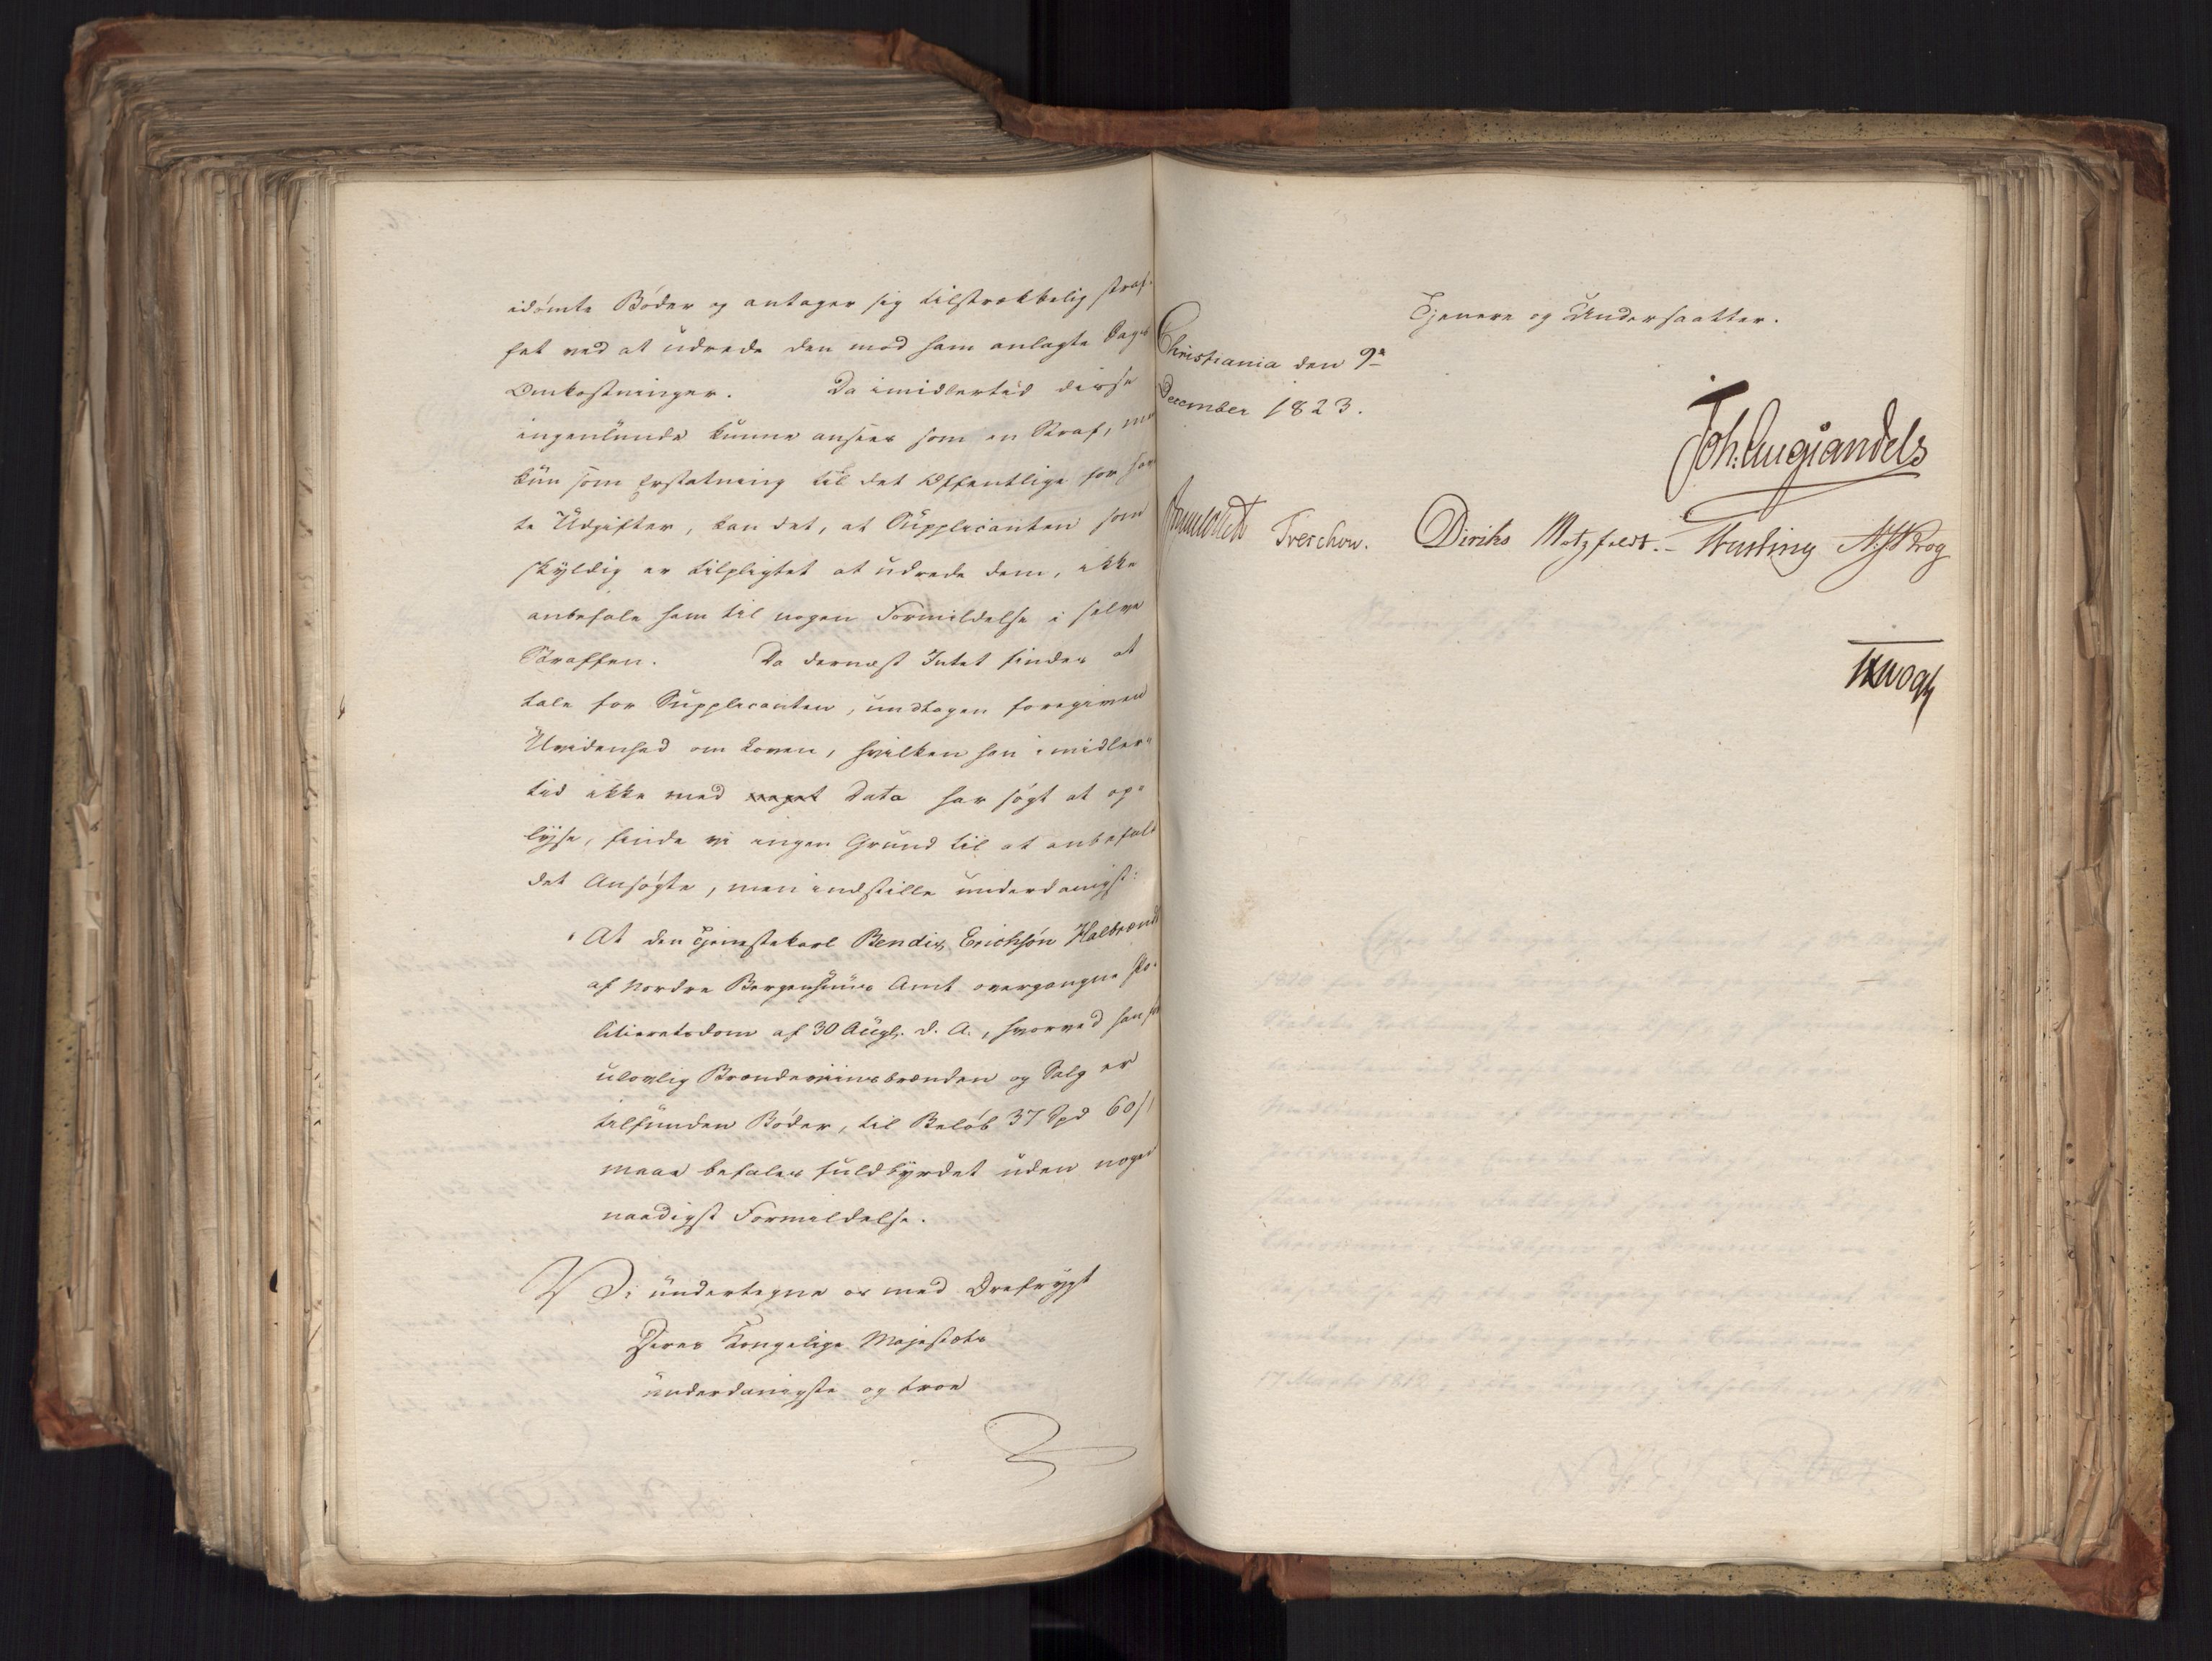 idömte Böder og antager sig tilstrækkelig straf-
fet ved at udrede den mod ham anlagte Sags
Omkostninger. Da imidlertid disse
ingenlunde kunne ansees som en Straf, men
kun som Erstatning til det Offentlige for hav
te Udgifter, kan det, at Supplicanten som
skyldig er tilpligtet at udrede dem, ikke
anbefale ham til nogen Formildelse i selve
Straffen. Da dernæst Intet findes at
tale for Supplicanten, undtagen foregiven
Uvidenhed om Loven, hvilken han imidler-
tid ikke med noget Data har søgt at op-
lyse, finde vi ingen Grund til at anbefale
det Ansøgte, men indstille underdanigst:
At den Tjenestekarl Bendix Erichsön Halbrend
af Nordre Bergenhuus Amt overgangne Po-
litieretsdom af 30 Augs. d. A., hvorved han for
ulovlig Brændeviinsbrænden og Salg er
tilfunden Böder, til Beløb 37 Spd 60 s
maae befales fuldbyrdet uden nogen
naadigst Formildelse.
Vi undertegne os med Ærefrygt
Deres Kongelige Majestæts
underdanigste og troe
Tjenere og Undersaatter.
Christiania den 9de
December 1823.
Joh: Aug: Sandels
Sommerhielm Treschow. Diriks Motzfeldt. Fasting N J Krog